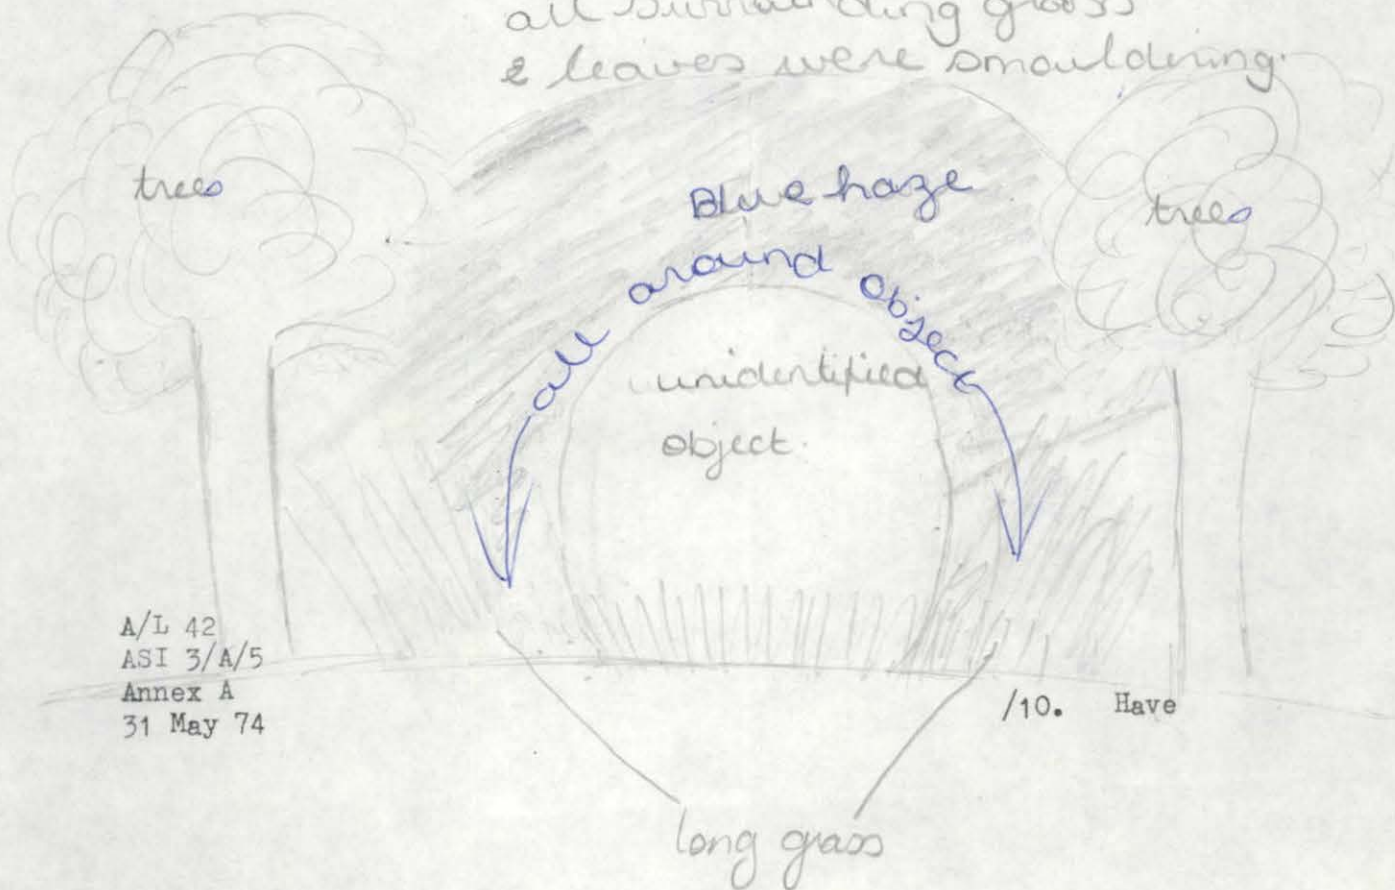 all surrounding grass
& leaves were smouldering.
trees
Blue haze
trees
all around object
unidentified
object.
A/L 42
ASI 3/A/5
Annex A
31 May 74
/10. Have
long grass